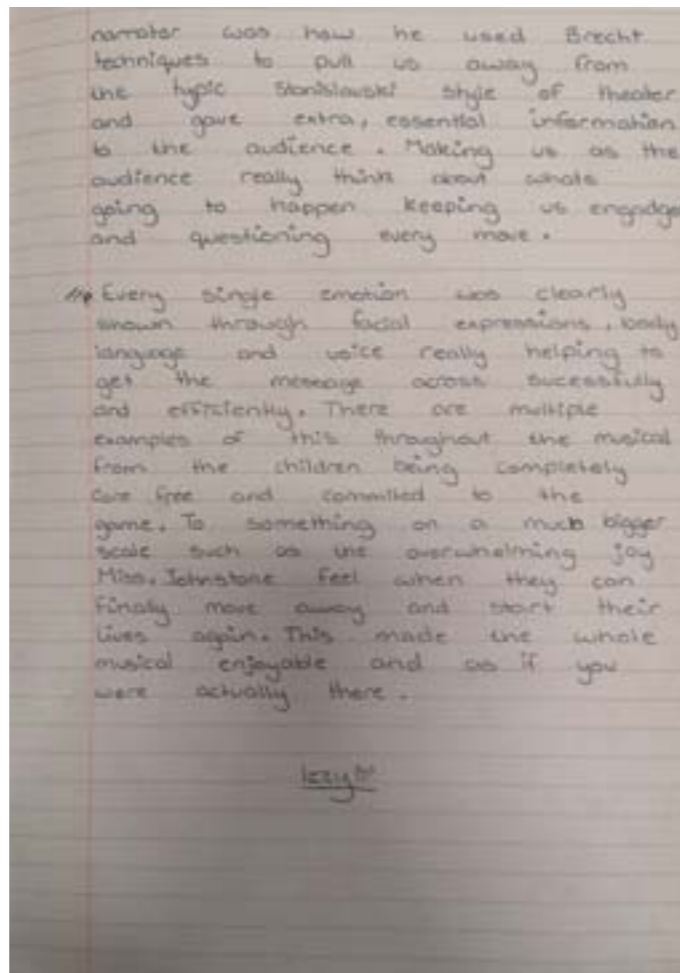 narrator was how he used Brecht
techniques to pull us away from
the typic Stanislavski style of theater
and gave extra, essential information
to the audience. Making us as the
audience really think about whats
going to happen keeping us engadge
and questioning every move.
Every single emotion was clearly
shown through facial expressions, body
language and voice really helping to
get the message across sucessfully
and efficiently. There are multiple
examples of this throughout the musical
from the children being completely
care free and committed to the
game. To something on a much bigger
scale such as the overwhelming joy
Miss. Johnstone feel when they can
finally move away and start their
lives again. This made the whole
musical enjoyable and as if you
were actually there.